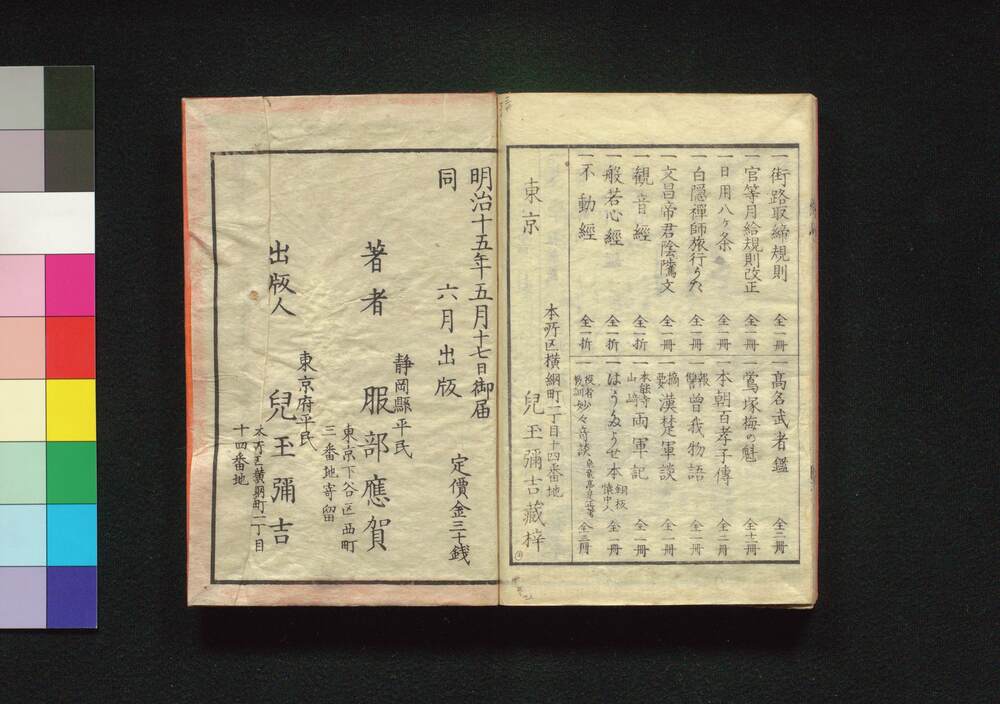 一街路取締規則 全一冊
一官等月給規則改正 全一冊
一日用八ヶ条 全一冊
一白隠禪師旅行うた 全一冊
一文昌帝君陰隲文 全一冊
一観音經 全一折
一般若心經 全一折
一不動經 全一折
一高名武者鑑 全二冊
一鶯塚梅の魁 全十二冊
一本朝百孝子傳 全二冊
一報讐曽我物語 全一冊
一摘要漢楚軍談 全一冊
一本能寺山崎両軍記 全一冊
一はうた 本 銅板懐中入 全一冊
妙々奇談 全三冊
東京
本所区横網町二丁目十四番地
兒玉彌吉藏梓
明治十五年五月十七日御届
同 六月出版
定價金三十銭
静岡縣平民
著者 服部應賀
東京下谷区西町
三番地寄留
東京府平民
出版人 兒玉彌吉
本所区横網町二丁目
十四番地